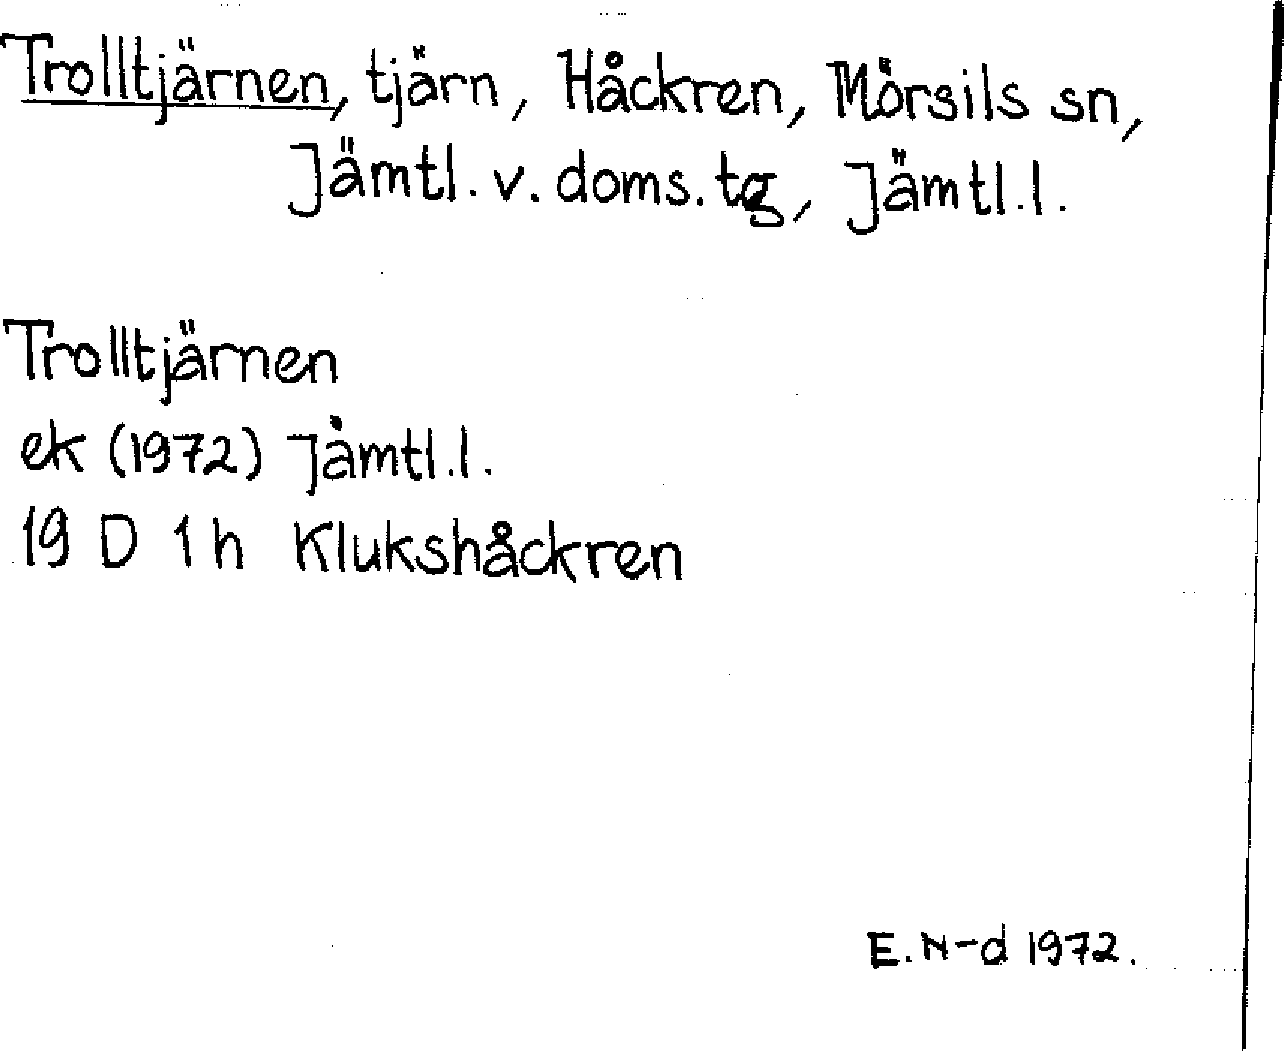 Trolltjärnen, tjärn, Håckren, Mörsils sn,
Jämtl. v. doms. tg, Jämtl.l.
Trolltjärnen
ek (1972) Jämtl.l.
19 D 1h Klukshåckren
E. N-d 1972.